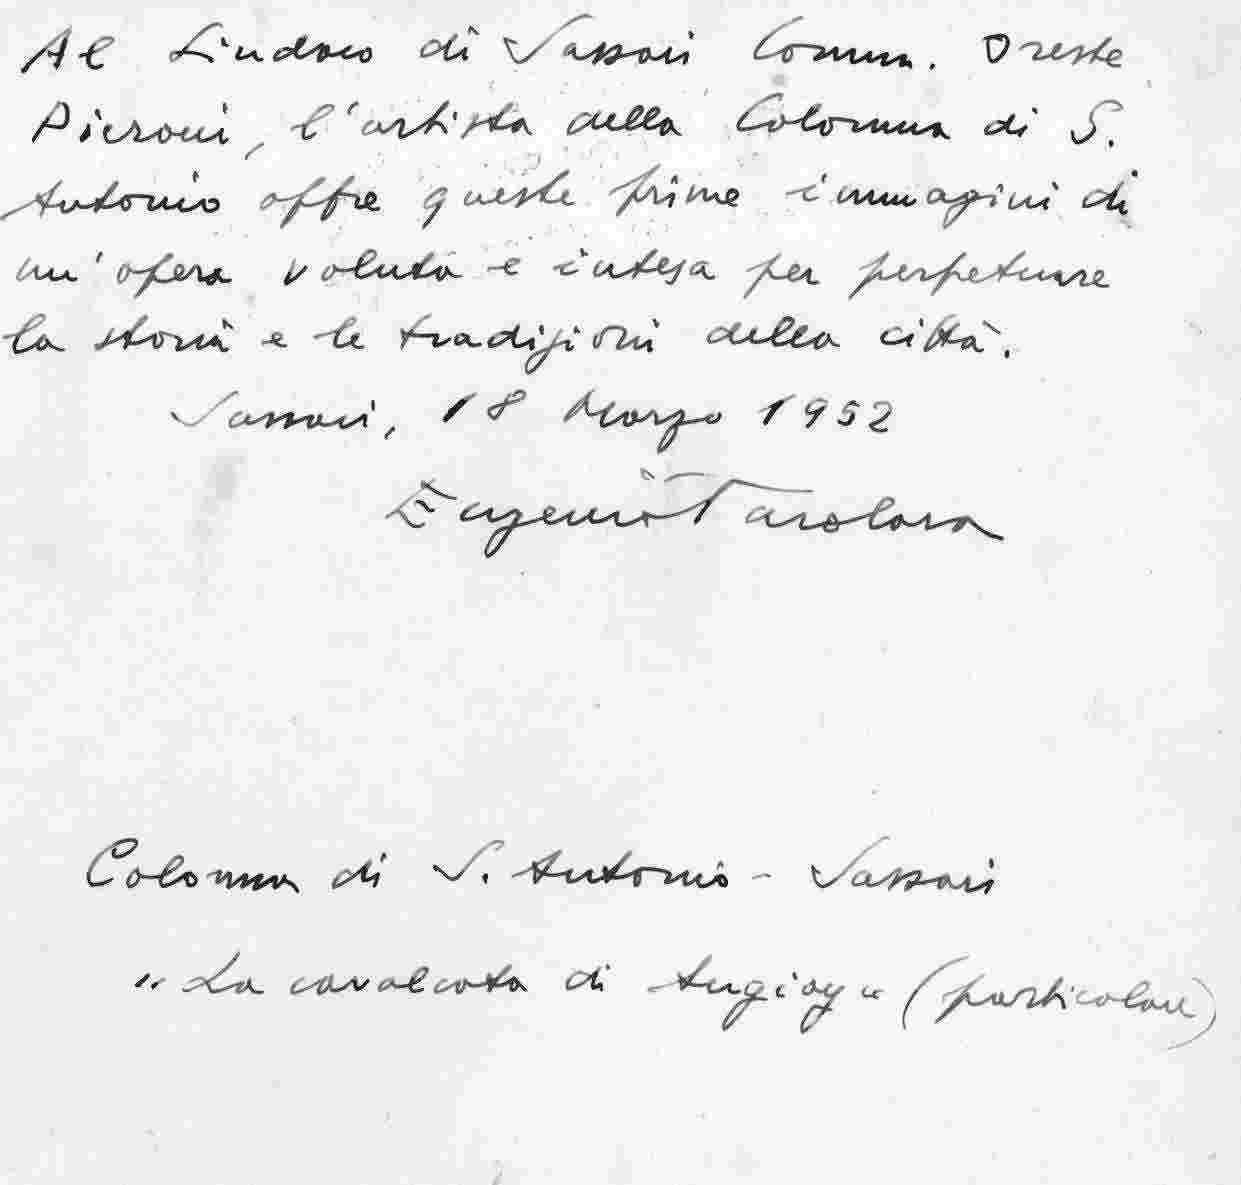 Al Sindaco di Sassari Comm. Oreste
Pieroni, l'artista della Colonna di S.
Antonio offre queste prime immagini di
un'opera voluta e intesa per perpetuare
la storia e le tradizioni della città.
Sassari, 18 Marzo 1952
Eugenio Tavolara
Colonna di S. Antonio - Sassari
"La cavalcata di Angioy" (particolare)